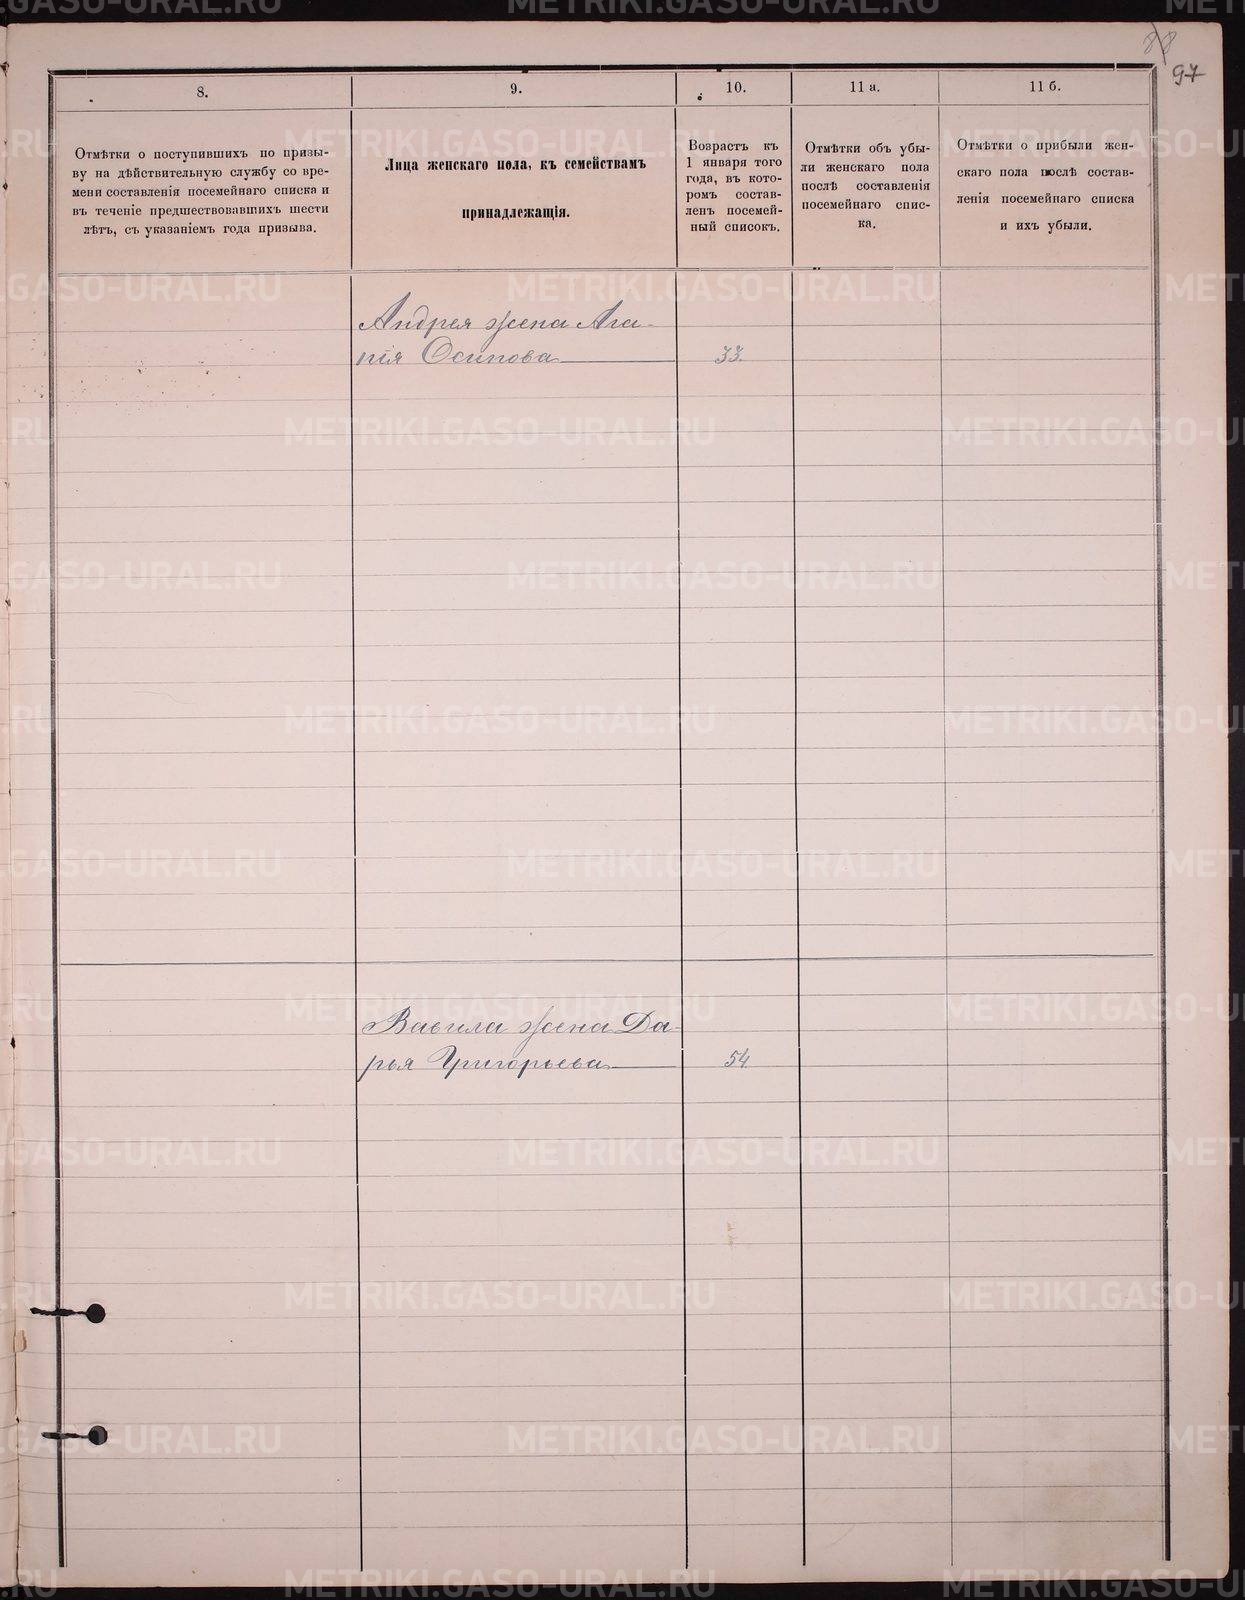 88
97
8.
9.
10.
11 а.
11 б.
Отмѣтки о поступившихъ по призы-
ву на дѣйствительную службу со вре-
мени составленія посемейнаго списка и
въ теченіе предшествовавшихъ шести
лѣтъ, съ указаніемъ года призыва.
Лица женскаго пола, къ семействамъ
принадлежащія.
Возрастъ къ
1 января того
года, въ кото-
ромъ состав-
ленъ посемей-
ный списокъ.
Отмѣтки объ убы-
ли женскаго пола
послѣ составленія
посемейнаго спис-
ка.
Отмѣтки о прибыли жен-
скаго пола послѣ состав-
ленія посемейнаго списка
и ихъ убыли.
Андрея жена Ага-
пія Осипова 33.
Вавила жена Да-
рья Григорьева 54
METRIKI.GASO-URAL.RU